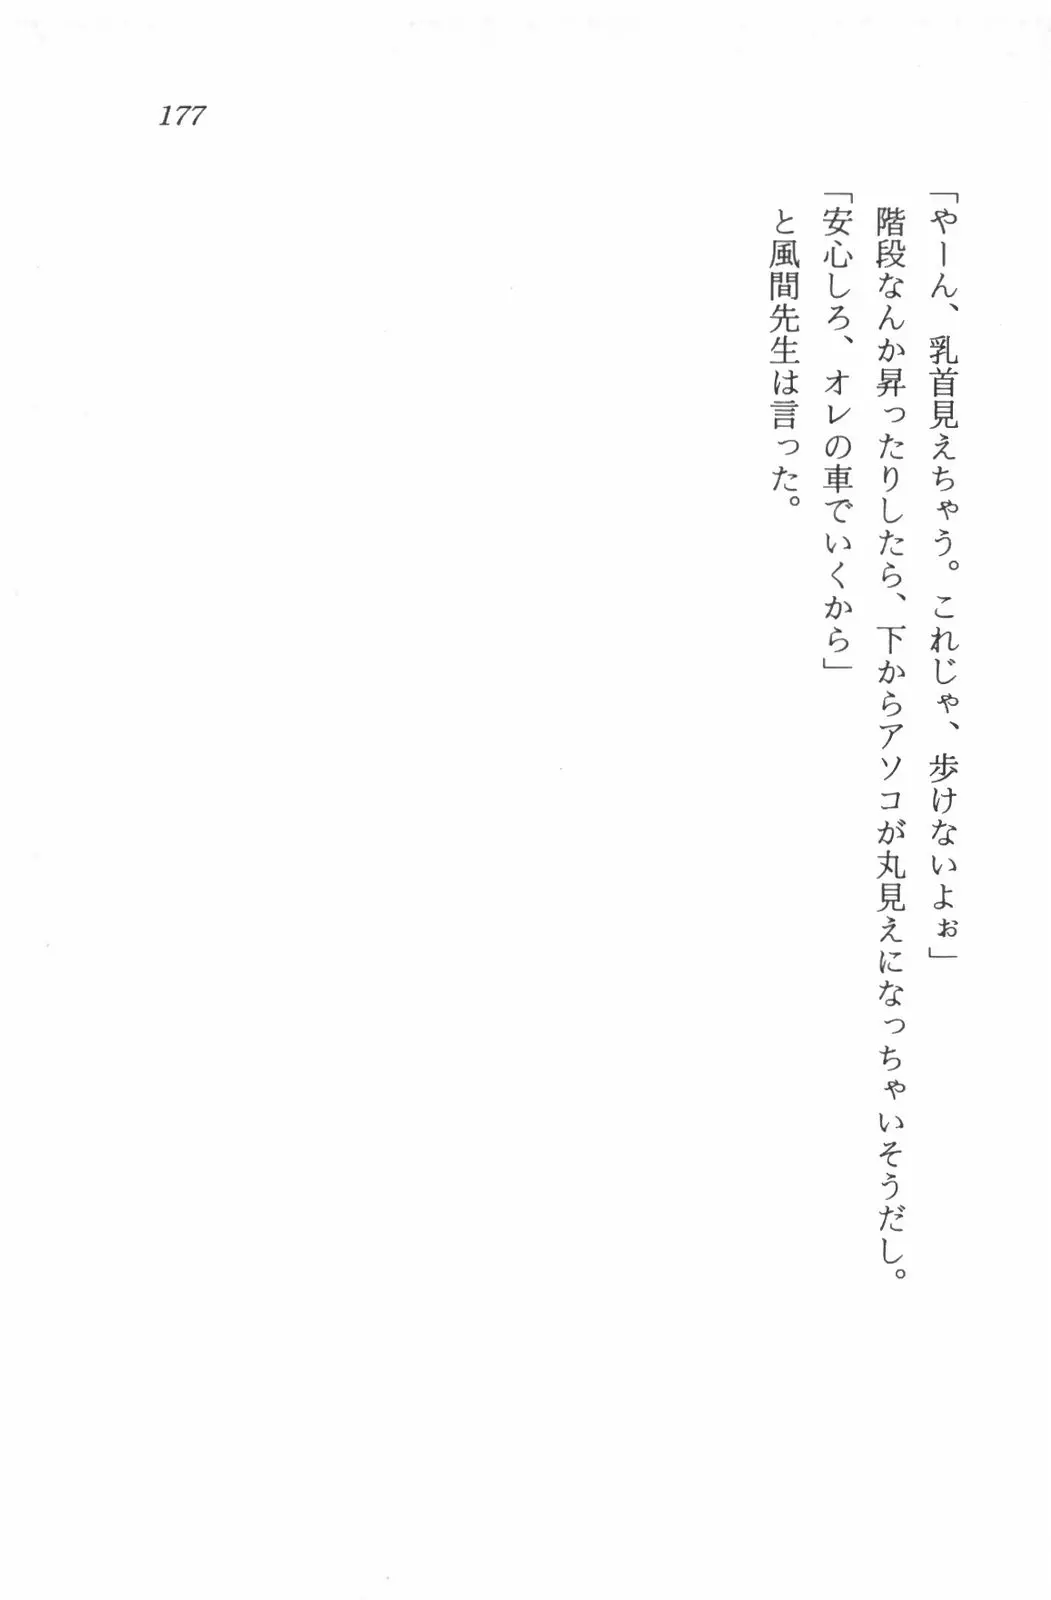 177
「やーん、乳首見えちゃう。これじゃ、歩けないよぉ」
階段なんか昇ったりしたら、下からアソコが丸見えになっちゃいそうだし。
「安心しろ、オレの車でいくから」
と風間先生は言った。